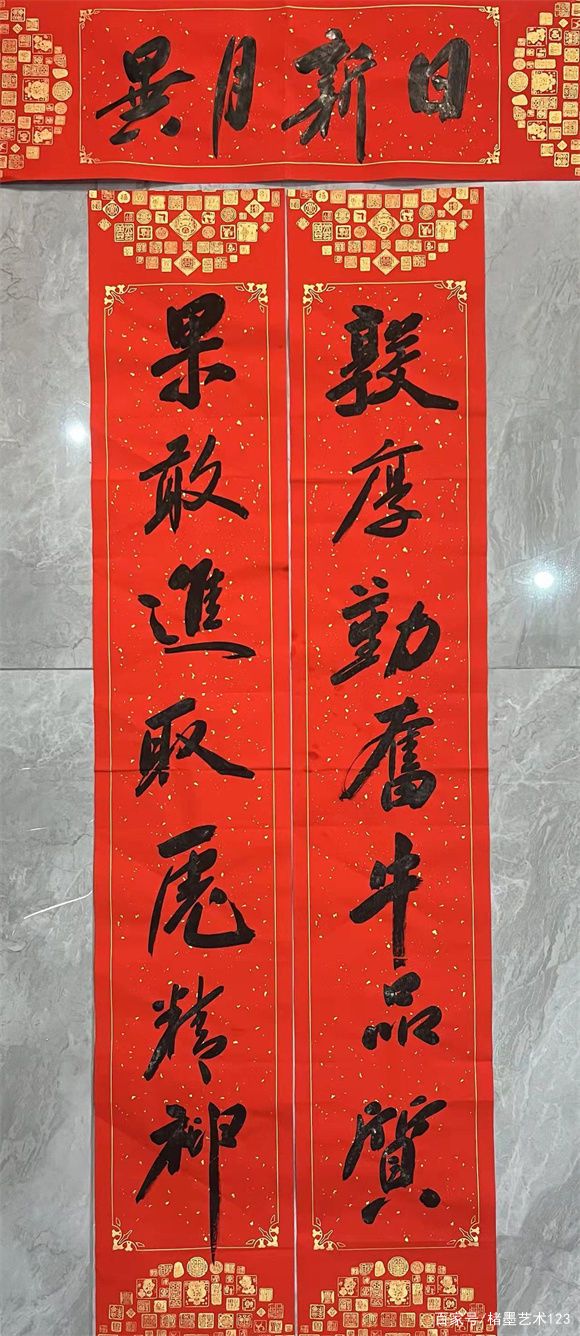 日新月異
敦厚勤奮牛品質
果敢進取虎精神
百家号/楮墨艺术123